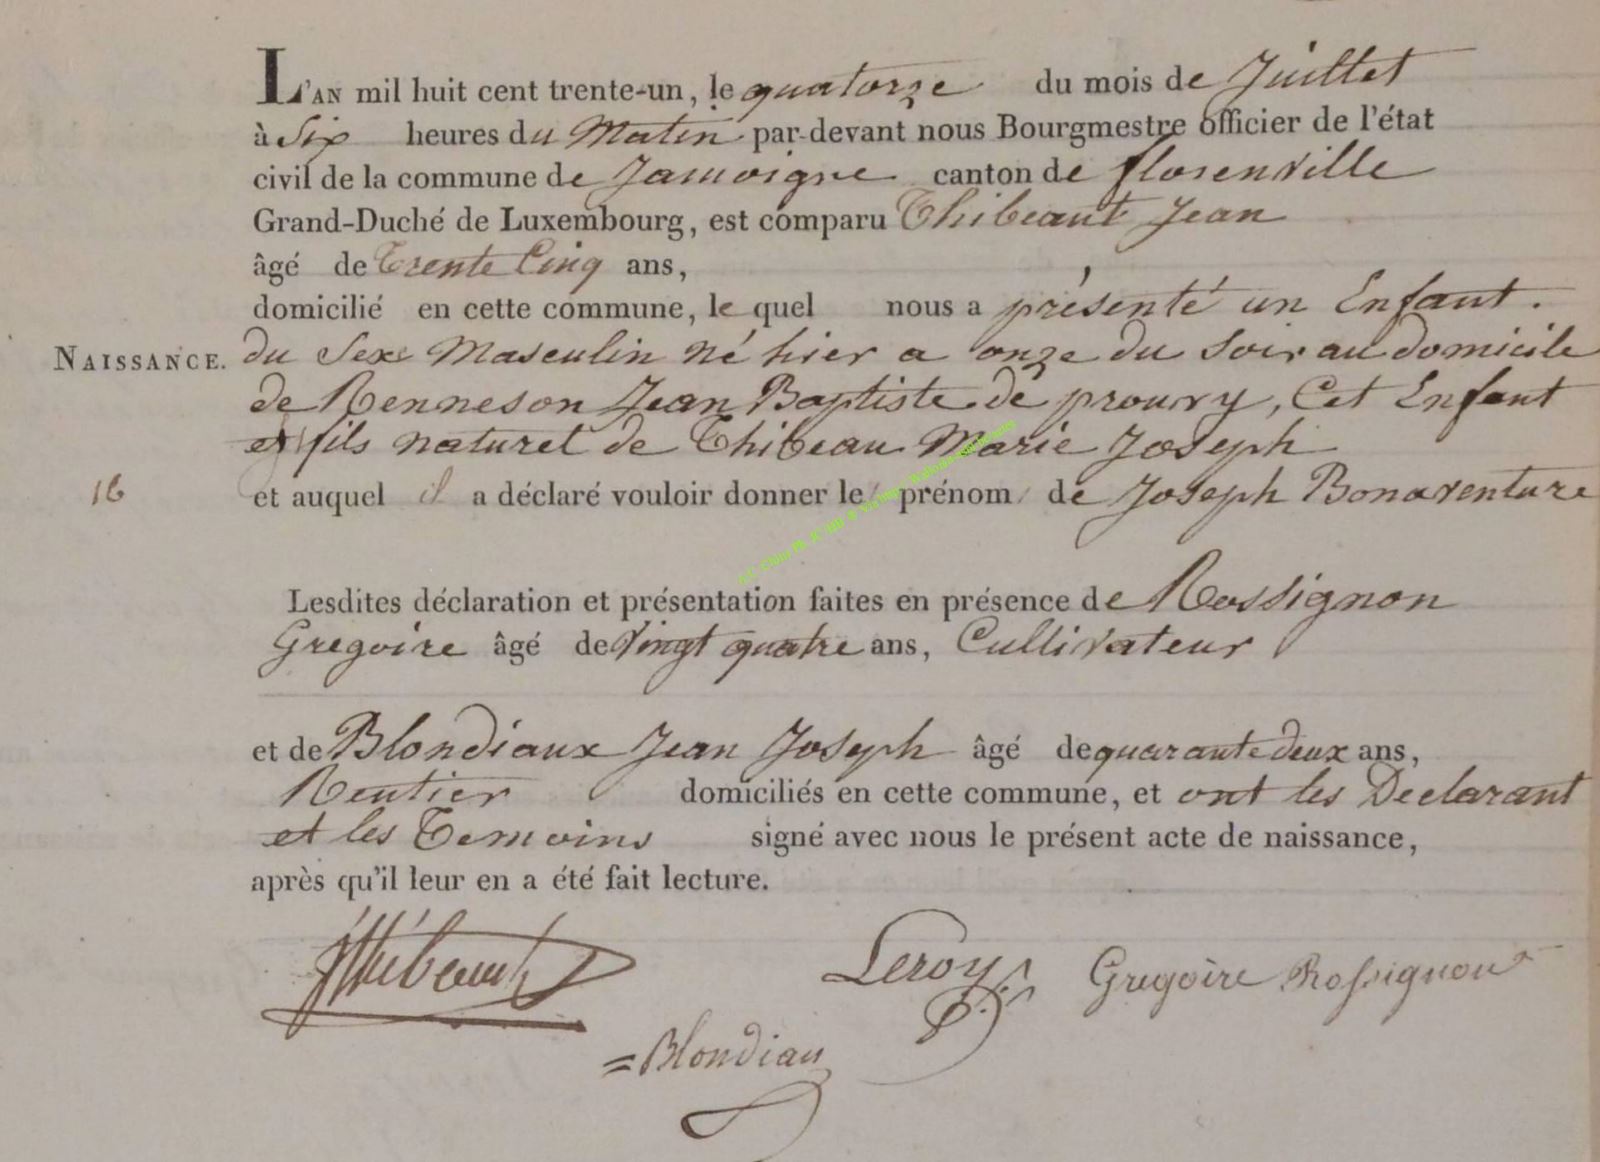 L'AN mil huit cent trente-un, le quatorze du mois de Juillet
à Six heures du Matin par-devant nous Bourgmestre officier de l'état
civil de la commune de Jamoigne canton de florenville
Grand-Duché de Luxembourg, est comparu Thibeaut Jean
âgé de Trente Cinq ans,
domicilié en cette commune, le quel nous a présenté un Enfant.
NAISSANCE. du Sexe Masculin né hier a onze du Soir au domicile
de Renneson Jean Baptiste de prouvy, Cet Enfant
et fils naturel de Thibeau Marie Joseph
16 et auquel il a déclaré vouloir donner le prénom de Joseph Bonaventure
Lesdites déclaration et présentation faites en présence de Rossignon
Gregoire âgé de Vingt quatre ans, Cultivateur
et de Blondiaux Jean Joseph âgé de quarante deux ans,
Rentier domiciliés en cette commune, et ont les Declarant
et les Temoins signé avec nous le présent acte de naissance,
après qu'il leur en a été fait lecture.
JThibeaut Leroy Gregoire Rossignon
=Blondiau